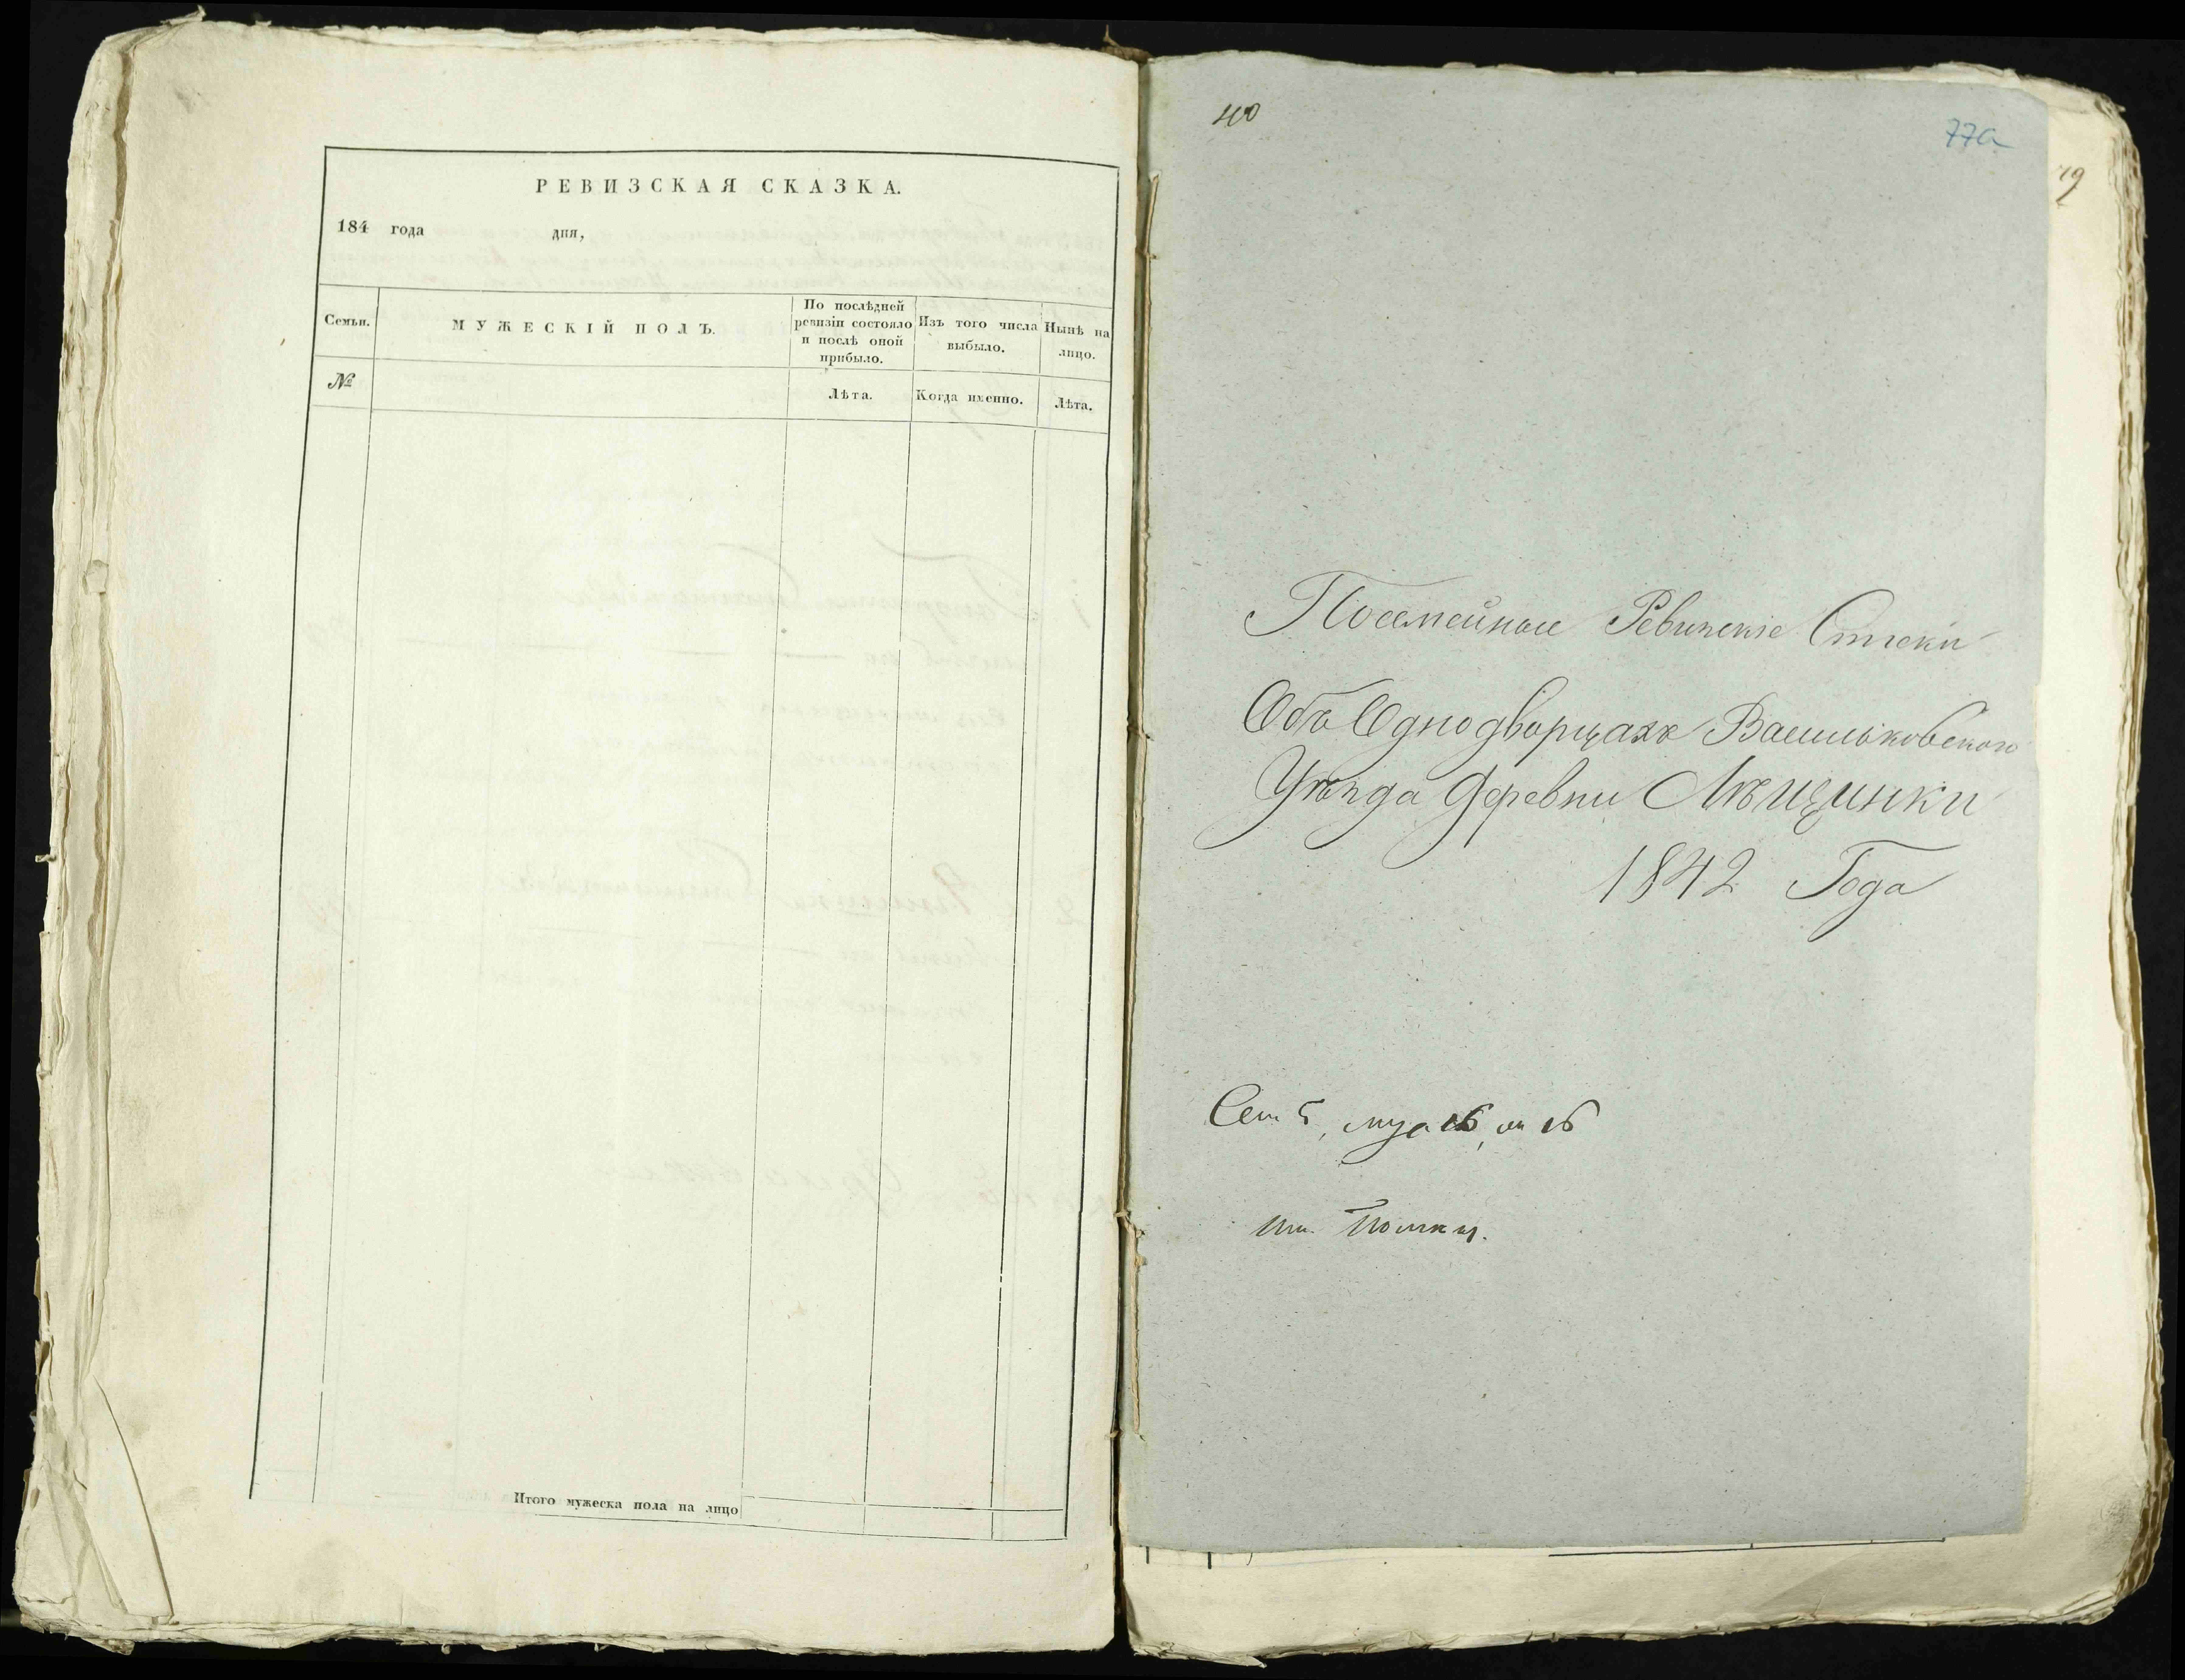 РЕВИЗСКАЯ СКАЗКА.
184 года дня,
Семьи.
МУЖЕСКІЙ ПОЛЪ.
По послѣдней
ревизіи состояло
и послѣ оной
прибыло.
Изъ того числа
выбыло.
Нынѣ на
лицо.
№
Лѣта.
Когда именно.
Лѣта.
Итого мужеска пола на лицо
40
77а
79
Посемейные Ревизскіе Списки
Объ Однодворцахъ Васильковскаго
Уѣзда Деревни Лѣщинки
1842 Года
Сем 5, муж 16, ж 16